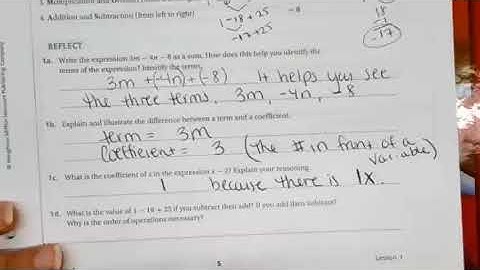 3. Multiplication and Division (from left to right)
4. Addition and Subtraction (from left to right)
1-18+25
-17+25
-8
18
-1
-17
REFLECT
1a. Write the expression 3m − 4n − 8 as a sum. How does this help you identify the
terms of the expression? Identify the terms.
3m+(-4n)+(-8) It helps you see
the three terms, 3m, -4n, -8
1b. Explain and illustrate the difference between a term and a coefficient.
term = 3m
Coefficient = 3 (the # in front of a
variable)
1c. What is the coefficient of x in the expression x − 2? Explain your reasoning.
1 because there is 1x.
1d. What is the value of 1 − 18 + 25 if you subtract then add? If you add then subtract?
Why is the order of operations necessary?
5
Lesson 1
© Houghton Mifflin Harcourt Publishing Company